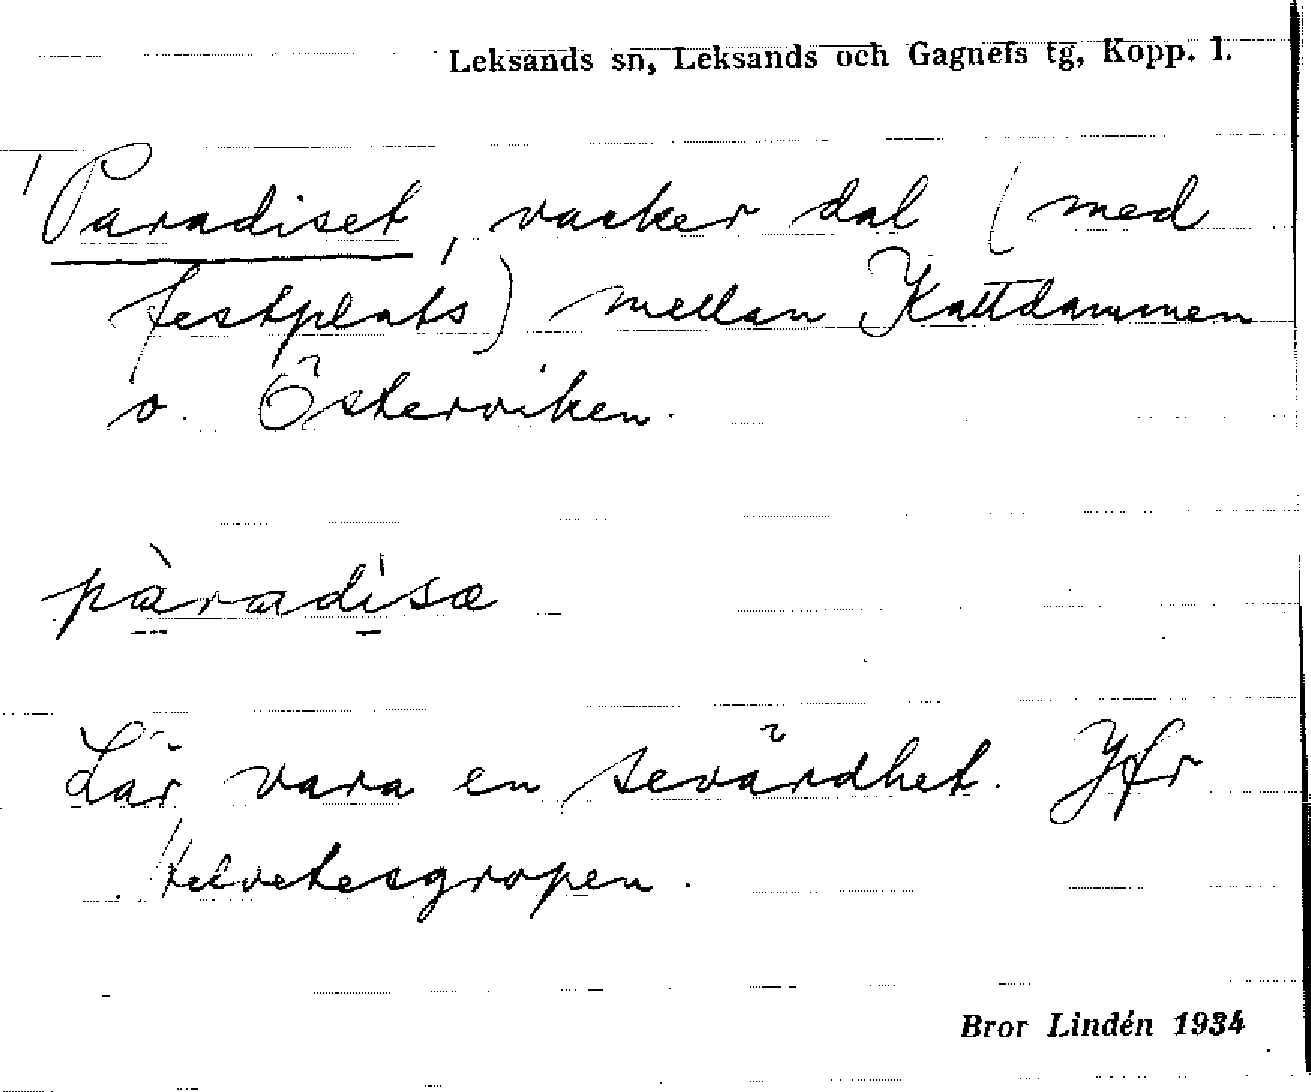 Leksands sn, Leksands och Gagnefs tg, Kopp. l.
Paradiset, vacker dal (med
festplats) mellan Kattdammen
o. Österviken.
pàradìsa
Lär vara en sevärdhet. Jfr
Helvetesgropen.
Bror Lindén 1934